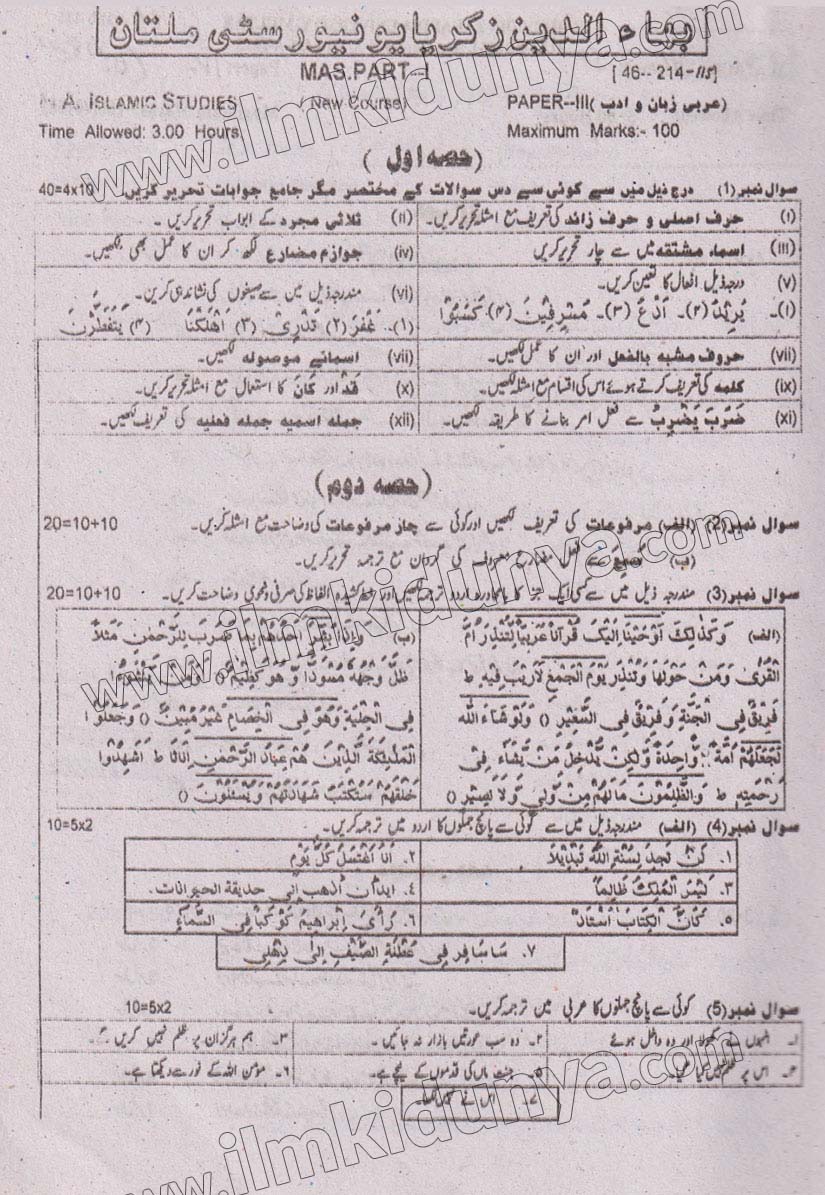 بہاء الدین زکریا یونیورسٹی ملتان
MAS.PART--I [ 46-- 214 -115]
M.A. ISLAMIC STUDIES (New Course) PAPER--III (عربی زبان و ادب)
Time Allowed: 3.00 Hours Maximum Marks:- 100
(حصہ اول)
سوال نمبر(1) درج ذیل میں سے کوئی سے دس سوالات کے مختصر مگر جامع جوابات تحریر کریں 40=4x10
(i) حرف اصلی و حرف زائد کی تعریف مع امثلہ تحریر کریں۔ (ii) ثلاثی مجرد کے ابواب تحریر کریں۔
(iii) اسماء مشتقہ میں سے چار تحریر کریں (iv) جوازم مضارع لکھ کر ان کا عمل بھی لکھیں۔
(v) درجہ ذیل افعال کا تعین کریں۔ (vi) مندرجہ ذیل میں سے صیغوں کی نشاندہی کریں۔
(۱)۔ (۲)۔ اُدْعُ (۳)۔ مُسْرِفِيْنَ (۴)۔ (۱)۔ غَفَرَ (۲) (۳) اَهْلَكْنَا (۴) يَتَفَطَّرْنَ
(vii) حروف مشبہ بالفعل اور ان کا عمل لکھیں۔ (vii) اسمائے موصولہ لکھیں۔
(ix) کلمہ کی تعریف کرتے ہوئے اس کی اقسام مع امثلہ لکھیں۔ (x) قَدْ اور كَانَ کا استعمال مع امثلہ تحریر کریں۔
(xi) ضَرَبَ يَضْرِبُ سے فعل امر بنانے کا طریقہ لکھیں۔ (xii) جملہ اسمیہ جملہ فعلیہ کی تعریف لکھیں۔
(حصہ دوم)
سوال نمبر(2) (الف) مرفوعات کی تعریف لکھیں اور کوئی سے چار مرفوعات کی وضاحت مع امثلہ کریں۔ 20=10+10
(ب) سَمِعَ سے فعل مضارع معروف کی گردان مع ترجمہ تحریر کریں۔
سوال نمبر(3) مندرجہ ذیل میں سے کسی ایک جز کا بامحاورہ اردو ترجمہ لکھیں اور خط کشیدہ الفاظ کی صرفی و نحوی وضاحت کریں۔ 20=10+10
(الف) وَكَذٰلِكَ اَوْحَيْنَا اِلَيْكَ قُرْآنًا عَرَبِيًّا لِّتُنْذِرَ اُمَّ (ب) وَاِذَا بُشِّرَ اَحَدُهُمْ بِمَا ضَرَبَ لِلرَّحْمٰنِ مَثَلًا
الْقُرٰى وَمَنْ حَوْلَهَا وَتُنْذِرَ يَوْمَ الْجَمْعِ لَارَيْبَ فِيْهِ ط ظَلَّ وَجْهُهُ مُسْوَدًّا وَّ هُوَ كَظِيْمٌ ()
فَرِيْقٌ فِى الْجَنَّةِ وَفَرِيْقٌ فِى السَّعِيْرِ () وَلَوْ شَاءَ اللّٰه فِى الْحِلْيَةِ وَهُوَ فِى الْخِصَامِ غَيْرُ مُبِيْنٍ () وَجَعَلُوا
لَجَعَلَهُمْ اُمَّةً وَّاحِدَةً وَّلٰكِنْ يُّدْخِلُ مَنْ يَّشَاءُ فِى الْمَلٰئِكَةَ الَّذِيْنَ هُمْ عِبَادُ الرَّحْمٰنِ اِنَاثًا ط اَشَهِدُوا
رَحْمَتِهِ ط وَالظّٰلِمُوْنَ مَالَهُمْ مِّنْ وَّلِيٍّ وَّلَا نَصِيْرٍ () خَلْقَهُمْ سَتُكْتَبُ شَهَادَتُهُمْ وَيُسْئَلُوْنَ ()
سوال نمبر(4) (الف) مندرجہ ذیل میں سے کوئی سے پانچ جملوں کا اردو میں ترجمہ کریں۔ 10=5x2
۱. لَنْ تَجِدَ لِسُنَّةِ اللّٰهِ تَبْدِيْلًا ۲. اَنَا اَغْتَسِلُ كُلَّ يَوْمٍ
۳. لَيْسَ الْمَلِكُ ظَالِمًا ۴. ان اذهب إلى حديقة الحيوانات.
۵. الْكِتَابَ اُسْتَاذ ۶. رَأَى اِبْرَاهِيْمُ كَوْكَبًا فِي السَّمَاءِ
۷. سَاُسَافِرُ فِي عُطْلَةِ الصَّيْفِ اِلٰى
سوال نمبر(5) کوئی سے پانچ جملوں کا عربی میں ترجمہ کریں۔ 10=5x2
۱۔ انہوں نے اور وہ داخل ہوئے ۲۔ وہ سب عورتیں بازار نہ جائیں۔ ۳۔ ہم ہرگز ان پر ظلم نہیں کریں
۴۔ اس پر ظلم نہیں کیا گیا۔ ۵۔ جنت ماں کی قدموں کے نیچے ہے۔ ۶۔ مؤمن اللہ کے نور سے دیکھتا ہے۔
۷۔ اس نے نہیں
www.ilmkidunya.com
www.ilmkidunya.com
www.ilmkidunya.com
www.ilmkidunya.com